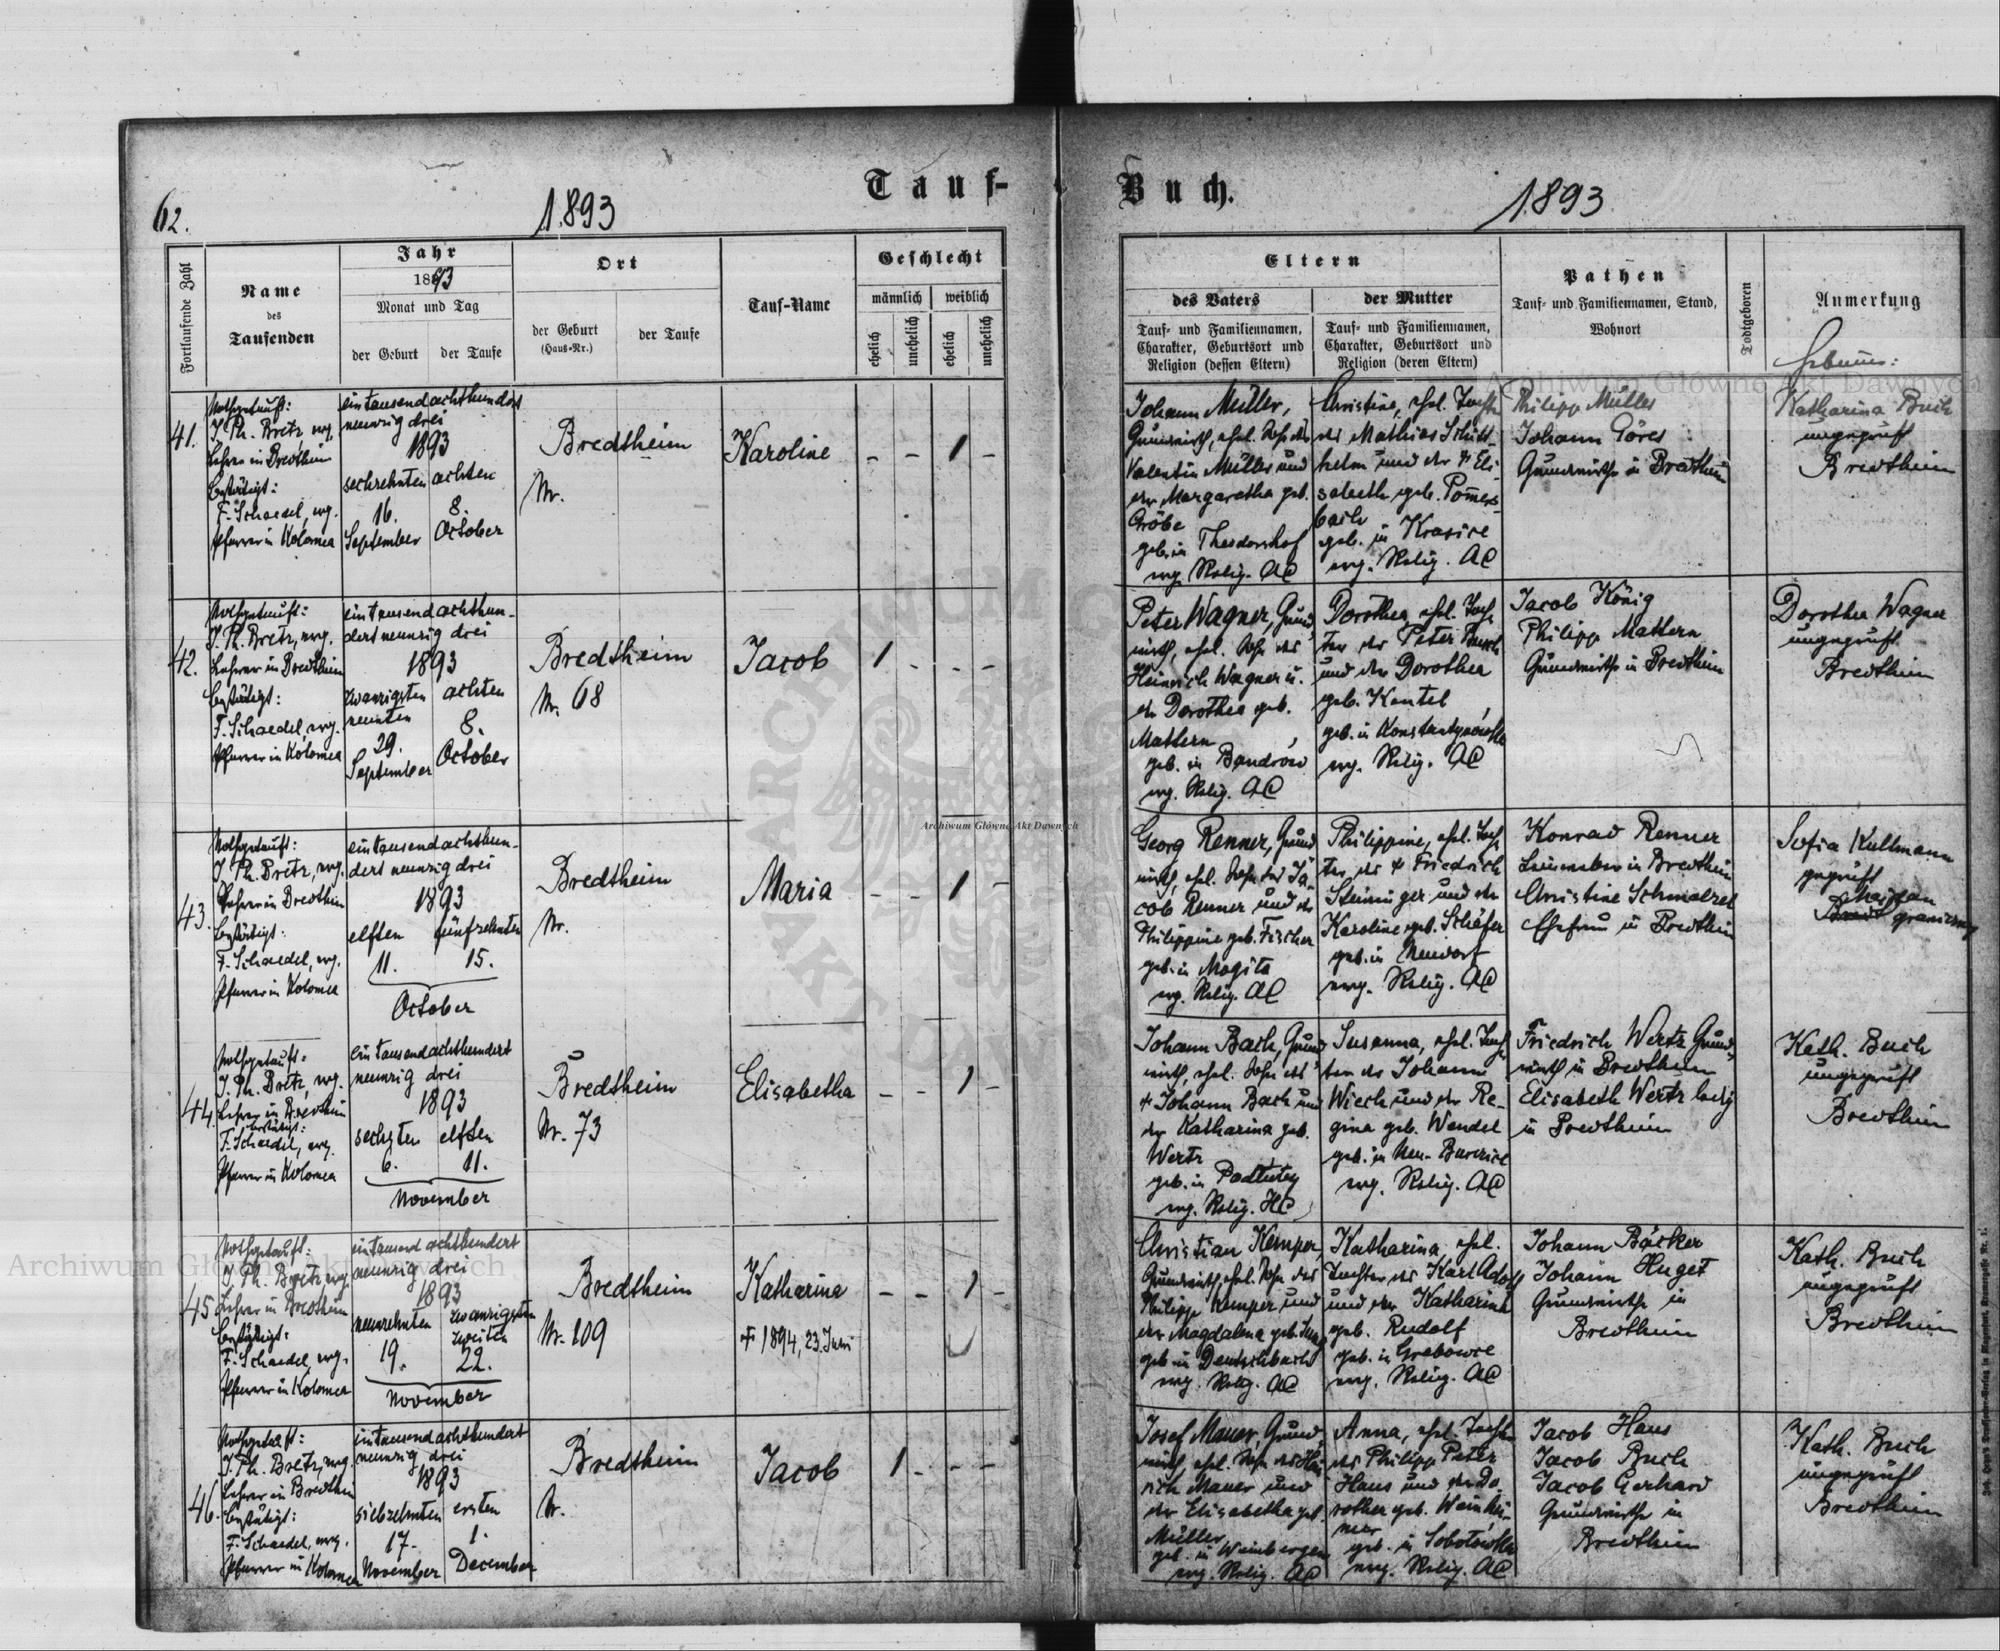 Tauf-
Buch.
62.
1893
1893
Fortlaufende Zahl
Name
des
Taufenden
Jahr
1893
Monat und Tag
der Geburt
der Taufe
Ort
der Geburt
(Haus-Nr.)
der Taufe
Tauf-Name
Geschlecht
männlich
weiblich
ehelich
unehelich
ehelich
unehelich
Eltern
des Vaters
Tauf- und Familiennamen,
Charakter, Geburtsort und
Religion (dessen Eltern)
der Mutter
Tauf- und Familiennamen,
Charakter, Geburtsort und
Religion (deren Eltern)
Pathen
Tauf- und Familiennamen, Stand,
Wohnort
Todtgeboren
Anmerkung
41.
Nothgetauft:
J. Ph. Bretz, evg.
Lehrer in Bredtheim
Bestätigt:
F. Schaedel, evg.
Pfarrer in Kolomea
eintausendachthundert
neunzig drei
1893
sechzehnten achten
16. 8.
September October
Bredtheim
Nr.
Karoline
- - 1 -
Johann Müller,
Grundwirth, ehel. Sohn des
Valentin Müller und
der Margaretha geb.
Gröbe
geb. in Theodorshof
evg. Relig. AC
Christine, ehel. Tochter
des Mathias Schitt-
helm und der † Eli-
sabeth geb. Pomers-
bach
geb. in Krasice
evg. Relig. AC
Philipp Müller
Johann Göres
Grundwirthe in Bredtheim
Katharina Buch
ungeprüft
Bredtheim
42.
Nothgetauft:
J. Ph. Bretz, evg.
Lehrer in Bredtheim
Bestätigt:
F. Schaedel, evg.
Pfarrer in Kolomea
eintausendachthun-
dert neunzig drei
1893
zwanzigsten achten
neunten
29. 8.
September October
Bredtheim
Nr. 68
Jacob
1 - - -
Peter Wagner, Grund
wirth, ehel. Sohn des
Heinrich Wagner u.
der Dorothea geb.
Mattern
geb. in Bandrów
evg. Relig. AC
Dorothea, ehel. Toch
ter des Peter
und der Dorothea
geb. Kentel
geb. in Konstantynówka
evg. Relig. AC
Jacob König
Philipp Mattern
Grundwirthe in Bredtheim
Dorothea Wagner
ungeprüft
Bredtheim
43.
Nothgetauft:
J. Ph. Bretz, evg.
Lehrer in Bredtheim
Bestätigt:
F. Schaedel, evg.
Pfarrer in Kolomea
eintausendachthun-
dert neunzig drei
1893
elften fünfzehnten
11. 15.
October
Bredtheim
Nr.
Maria
- - 1 -
Georg Renner, Grund
wirth, ehel. Sohn des Ja
cob Renner und der
Philippine geb. Fischer
geb. in Mogita
evg. Relig. AC
Philippine, ehel. Toch
ter des † Friedrich
Steininger und der
Karoline geb. Schäfer
geb. in Neudorf
evg. Relig. AC
Konrad Renner
in Bredtheim
Christine Schmalzel
Ehefrau in Bredtheim
Sofia Kullmann
geprüft
graniczny
44.
Nothgetauft:
J. Ph. Bretz, evg.
Lehrer in Bredtheim
Bestätigt:
F. Schaedel, evg.
Pfarrer in Kolomea
eintausendachthundert
neunzig drei
1893
sechsten elften
6. 11.
November
Bredtheim
Nr. 73
Elisabetha
- - 1 -
Johann Bach, Grund
wirth, ehel. Sohn des
† Johann Bach und
der Katharina geb.
Wertz
geb. in
evg. Relig. HC
Susanna, ehel. Toch
ter des Johann
Wiech und der Re-
gina geb. Wendel
geb. in Neu-Burczice
evg. Relig. AC
Friedrich Wertz Grund-
wirth in Bredtheim
Elisabeth Wertz ledig
in Bredtheim
Kath. Buch
ungeprüft
Bredtheim
45
Nothgetauft:
J. Ph. Bretz, evg.
Lehrer in Bredtheim
Bestätigt:
F. Schaedel, evg.
Pfarrer in Kolomea
eintausend achthundert
neunzig drei
1893
neunzehnten zwanzigsten
zweiten
19. 22.
November
Bredtheim
Nr. 109
Katharina
† 1894, 23. Juni
- - 1 -
Christian Kemper,
Grundwirth, ehel. Sohn des
Philipp Kemper und
der Magdalena geb. Jung
geb. in Deutschbach
evg. Relig. AC
Katharina, ehel.
Tochter des Karl Adolf
und der Katharina
geb. Rudolf
geb. in Grebowce
evg. Relig. AC
Johann Bäcker
Johann Huget
Grundwirthe in
Bredtheim
Kath. Buch
ungeprüft
Bredtheim
46.
Nothgetauft:
J. Ph. Bretz, evg.
Lehrer in Bredtheim
Bestätigt:
F. Schaedel, evg.
Pfarrer in Kolomea
eintausendachthundert
neunzig drei
1893
siebzehnten ersten
17. 1.
November December
Bredtheim
Nr.
Jacob
1 - - -
Josef Mauer, Grund
wirth, ehel. Sohn des Hein
rich Mauer und
der Elisabetha geb.
Müller
geb. in Weinbergen
evg. Relig. AC
Anna, ehel. Tochter
des Philipp Peter
Haus und der Do
rothea geb. Weinhei-
mer
geb. in Sobotówka
evg. Relig. AC
Jacob Haus
Jacob Buch
Jacob Gerhard
Grundwirthe in
Bredtheim
Kath. Buch
ungeprüft
Bredtheim
Archiwum Główne Akt Dawnych
Archiwum Główne Akt Dawnych
Archiwum Główne Akt Dawnych